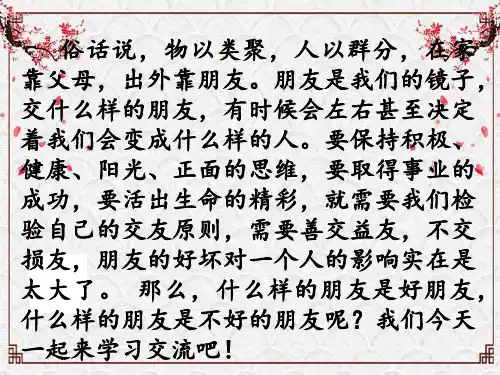 俗话说，物以类聚，人以群分，在家
靠父母，出外靠朋友。朋友是我们的镜子，
交什么样的朋友，有时候会左右甚至决定
着我们会变成什么样的人。要保持积极、
健康、阳光、正面的思维，要取得事业的
成功，要活出生命的精彩，就需要我们检
验自己的交友原则，需要善交益友，不交
损友，朋友的好坏对一个人的影响实在是
太大了。 那么，什么样的朋友是好朋友，
什么样的朋友是不好的朋友呢？我们今天
一起来学习交流吧！